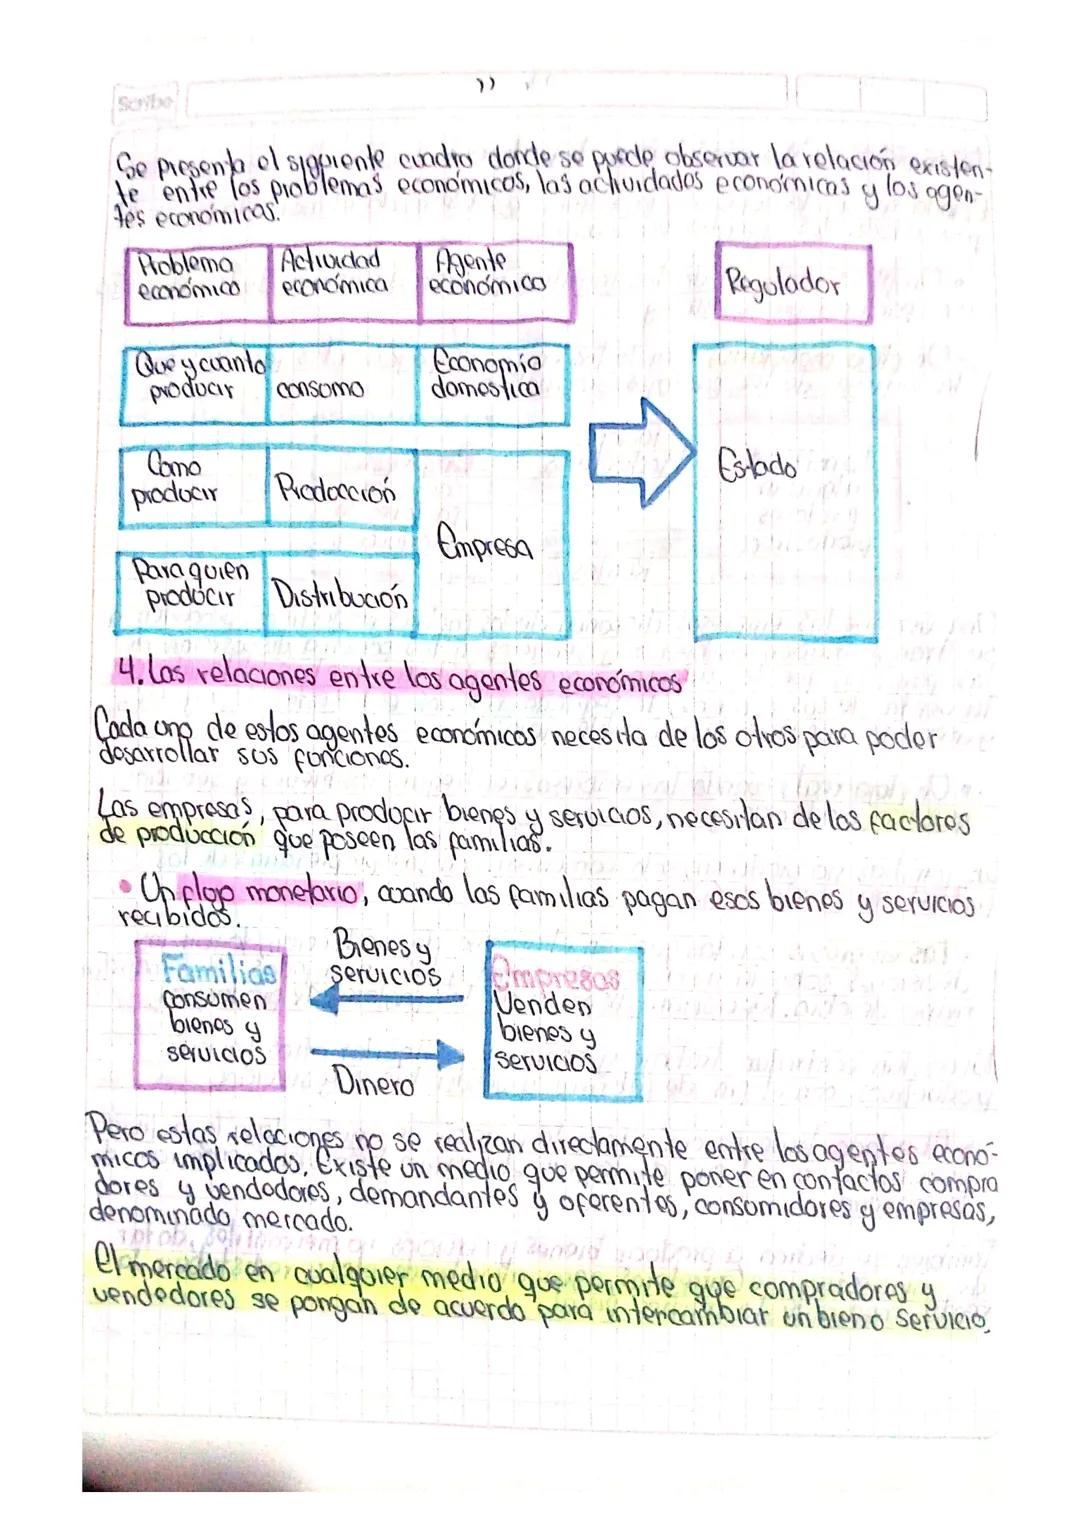 Scribe
Se presenta el siguiente cuadro donde se puede observar la relación existen-
te entre los problemas económicos, las actividades económicas y los agen-
tes económicos.
Problema económico
Actividad económica
Agente económico
Regulador
Que y cuanto producir
consumo
Economía domestica
Como producir
Producción
Empresa
Estado
Para quien producir
Distribución
4. Las relaciones entre los agentes económicos
Cada uno de estos agentes económicos necesita de los otros para poder
desarrollar sus funciones.
Las empresas, para producir bienes y servicios, necesitan de los factores
de producción que poseen las familias.
• Un flujo monetario, cuando las familias pagan esos bienes y servicios
recibidos.
Familias
consumen
bienes y
servicios
Bienes y
servicios
Dinero
Empresas
Venden
bienes y
servicios
Pero estas relaciones no se realizan directamente entre los agentes econó-
micos implicados. Existe un medio que permite poner en contactos compra
dores y vendedores, demandantes y oferentes, consumidores y empresas,
denominado mercado.
El mercado en cualquier medio que permite que compradores y
vendedores se pongan de acuerdo para intercambiar un bien o servicio.